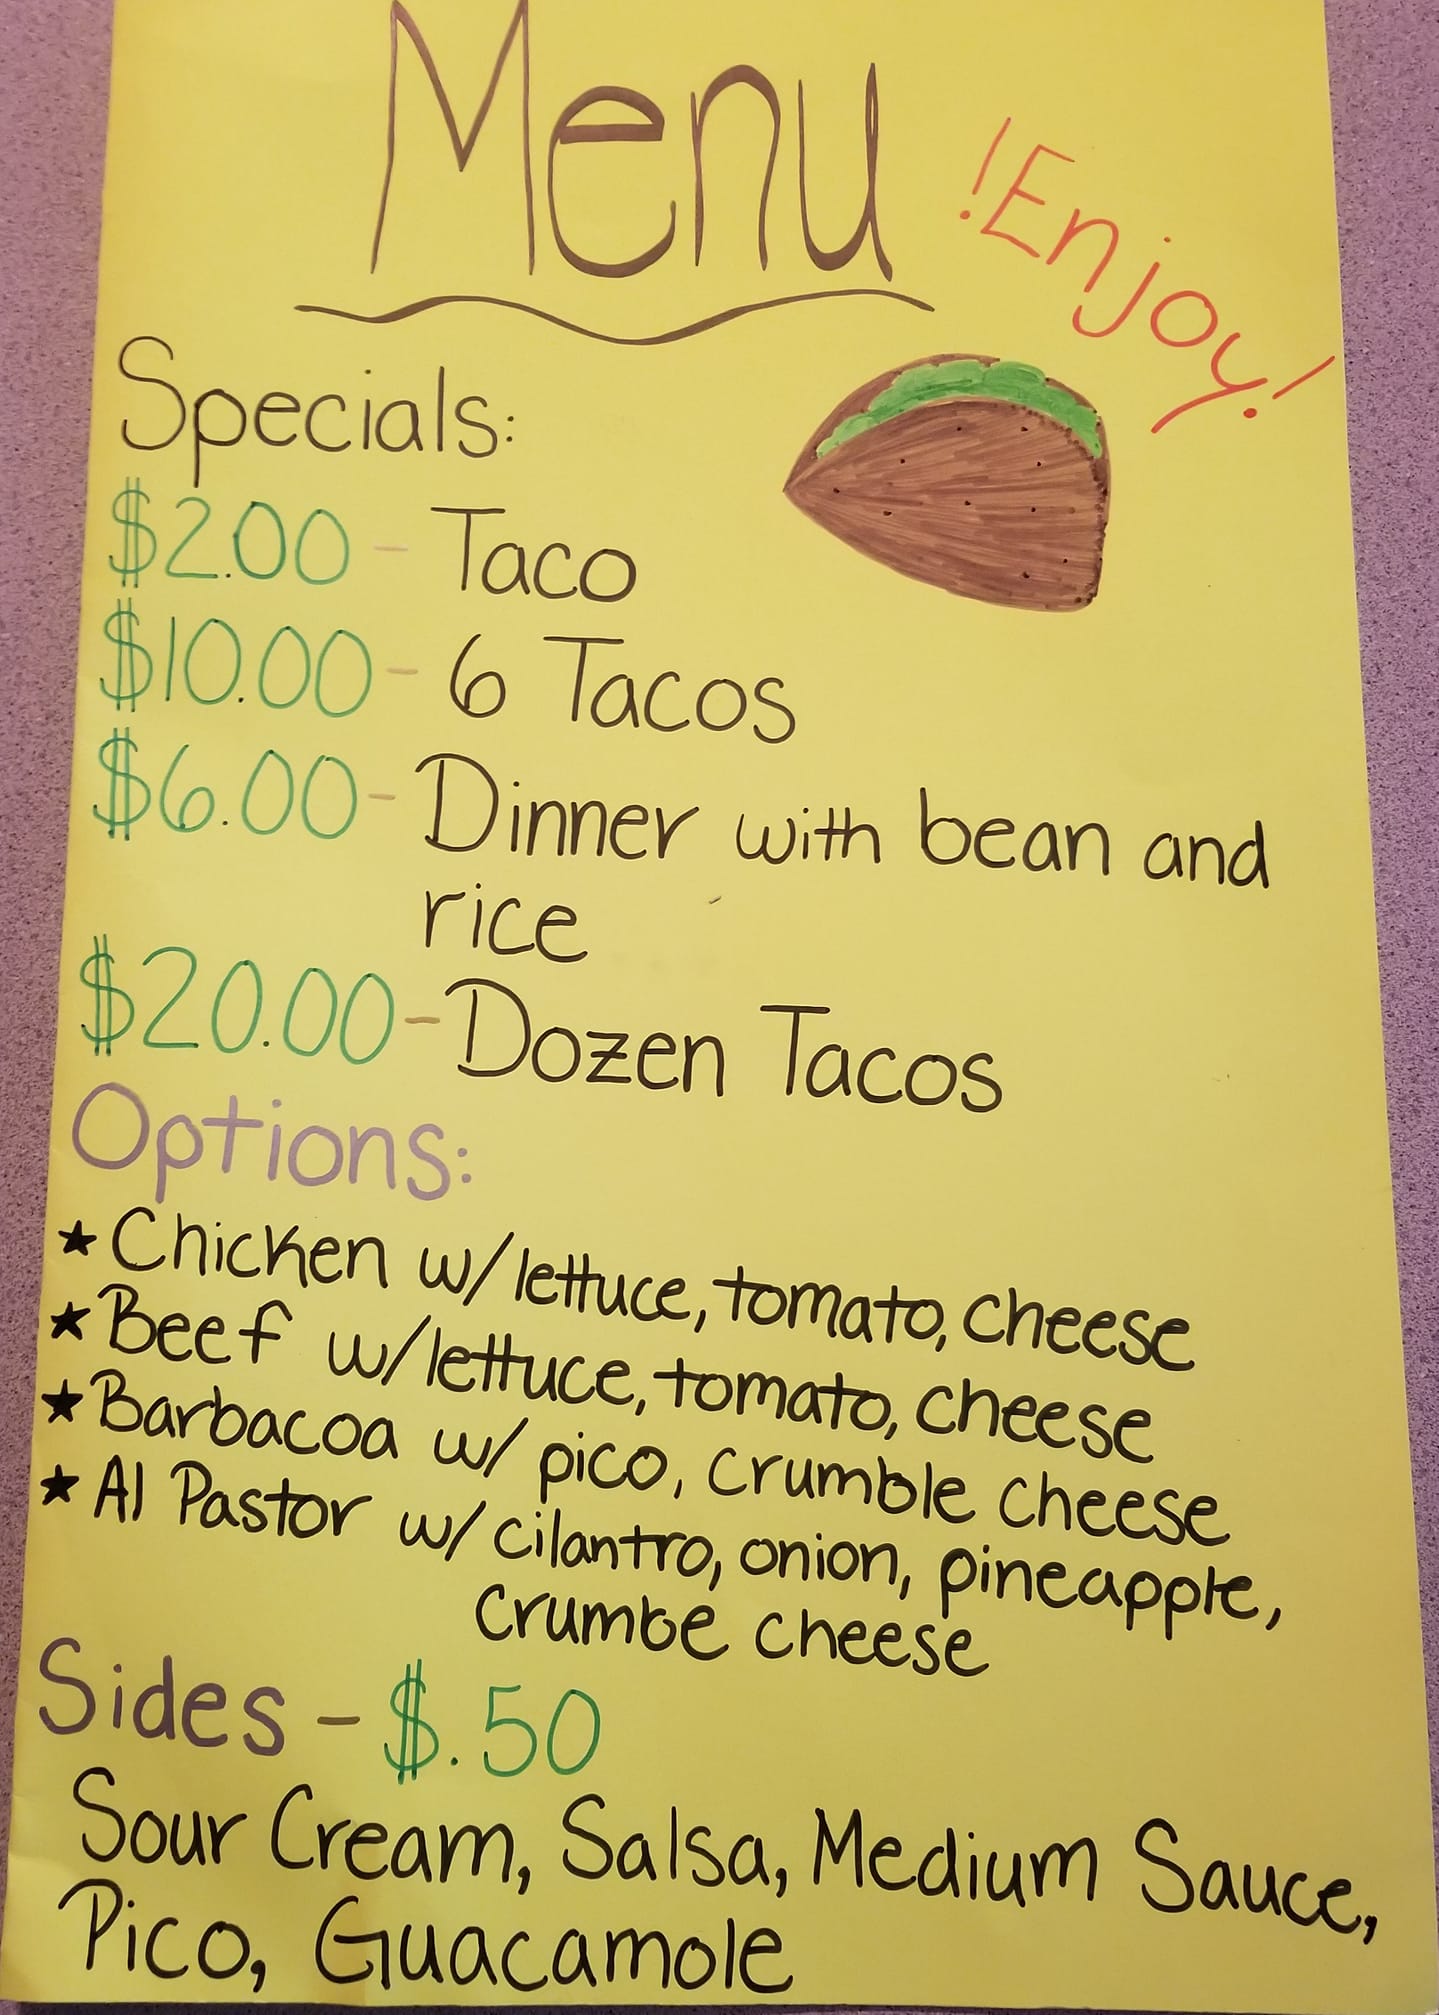 Menu
!Enjoy!
Specials:
$2.00 - Taco
$10.00 - 6 Tacos
$6.00 - Dinner with bean and
rice
$20.00 - Dozen Tacos
Options:
★ Chicken w/ lettuce, tomato, cheese
★ Beef w/ lettuce, tomato, cheese
★ Barbacoa w/ pico, crumble cheese
★ Al Pastor w/ cilantro, onion, pineapple,
crumbe cheese
Sides - $.50
Sour Cream, Salsa, Medium Sauce,
Pico, Guacamole